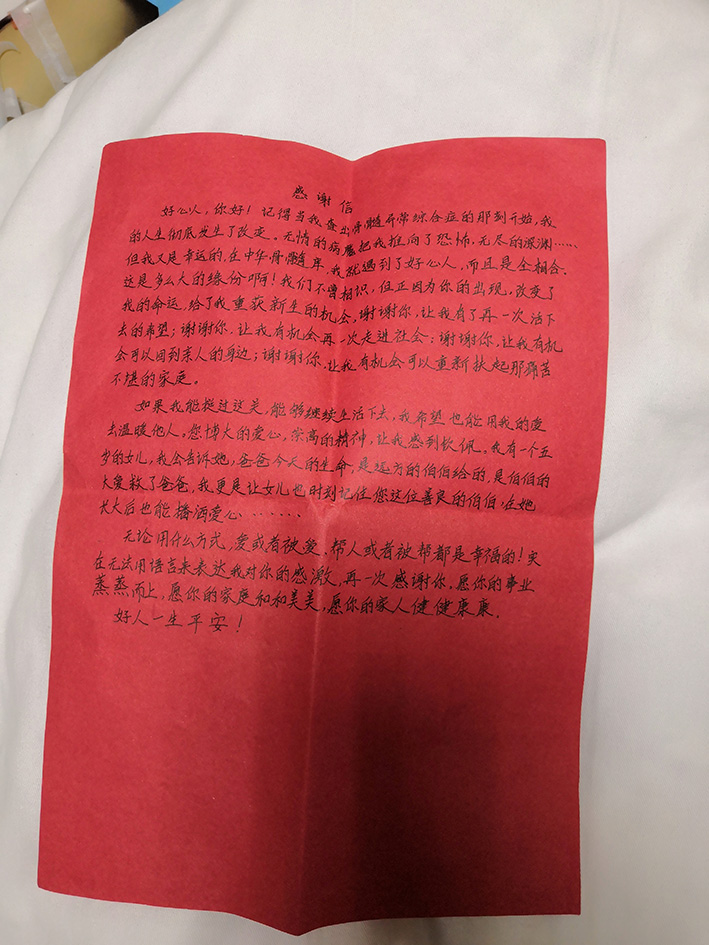 感谢信
好心人，你好！记得当我查出骨髓异常综合症的那刻开始，我
的人生彻底发生了改变。无情的病魔把我推向了恐怖，无尽的深渊……
但我又是幸运的，在中华骨髓库，我就遇到了好心人，而且是全相合，
这是多么大的缘份啊！我们不曾相识，但正因为你的出现，改变了
我的命运，给了我重获新生的机会，谢谢你，让我有了再一次活下
去的希望；谢谢你，让我有机会再一次走进社会；谢谢你，让我有机
会可以回到亲人的身边；谢谢你，让我有机会可以重新扶起那痛苦
不堪的家庭。
如果我能挺过这关，能够继续生活下去，我希望也能用我的爱
去温暖他人。您博大的爱心，崇高的精神，让我感到钦佩。我有一个五
岁的女儿，我会告诉她，爸爸今天的生命，是远方的伯伯给的，是伯伯的
大爱救了爸爸，我更是让女儿也时刻记住您这位善良的伯伯，在她
长大后也能播洒爱心……
无论用什么方式，爱或者被爱，帮人或者被帮都是幸福的！实
在无法用语言来表达我对你的感激，再一次感谢你，愿你的事业
蒸蒸而上，愿你的家庭和和美美，愿你的家人健健康康。
好人一生平安！